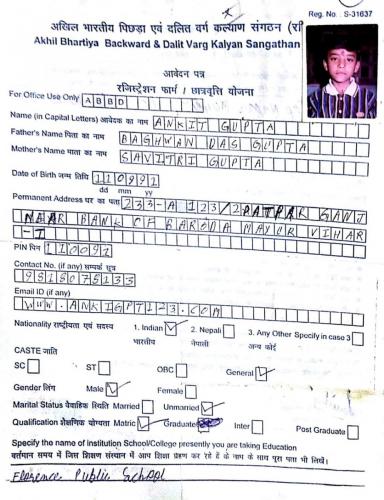 Reg. No. S-31637
अखिल भारतीय पिछड़ा एवं दलित वर्ग कल्याण संगठन (रजि
Akhil Bhartiya Backward & Dalit Varg Kalyan Sangathan
आवेदन पत्र
रजिस्ट्रेशन फार्म / छात्रवृत्ति योजना
For Office Use Only A B B D
Name (in Capital Letters) आवेदक का नाम ANKIT GUPTA
Father's Name पिता का नाम BAGHWAN DAS GUPTA
Mother's Name माता का नाम SAVITRI GUPTA
Date of Birth जन्म तिथि 110992
dd mm yy
Permanent Address घर का पता 233-A 123/2 PATPAR GANJ
NEAR BANK OF BARODA MAYOR VIHAR
-I
PIN पिन 110091
Contact No. (if any) सम्पर्क सूत्र
9515075133
Email ID (if any)
WWW.ANKIGPT123.COM
Nationality राष्ट्रीयता एवं सदस्य 1. Indian 2. Nepali 3. Any Other Specify in case 3
भारतीय नेपाली अन्य कोई
CASTE जाति
SC ST OBC General
Gender लिंग Male Female
Marital Status वैवाहिक स्थिति Married Unmarried
Qualification शैक्षणिक योग्यता Matric Graduate Inter Post Graduate
Specify the name of institution School/College presently you are taking Education
वर्तमान समय में जिस शिक्षण संस्थान में आप शिक्षा ग्रहण कर रहे हैं के नाम के साथ पूरा पता भी लिखें।
Florence Public School